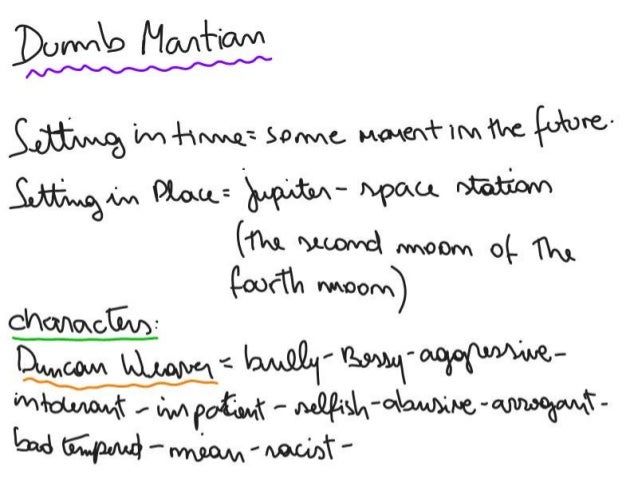 Dumb Martian
Setting in time = some moment in the future.
Setting in Place = jupiter - space station
(the second moom of The
fourth moom)
characters:
Duncan Weaver = bully - Bossy - aggressive -
intolerant - impatient - selfish - abusive - arrogant -
bad tempered - mean - racist -